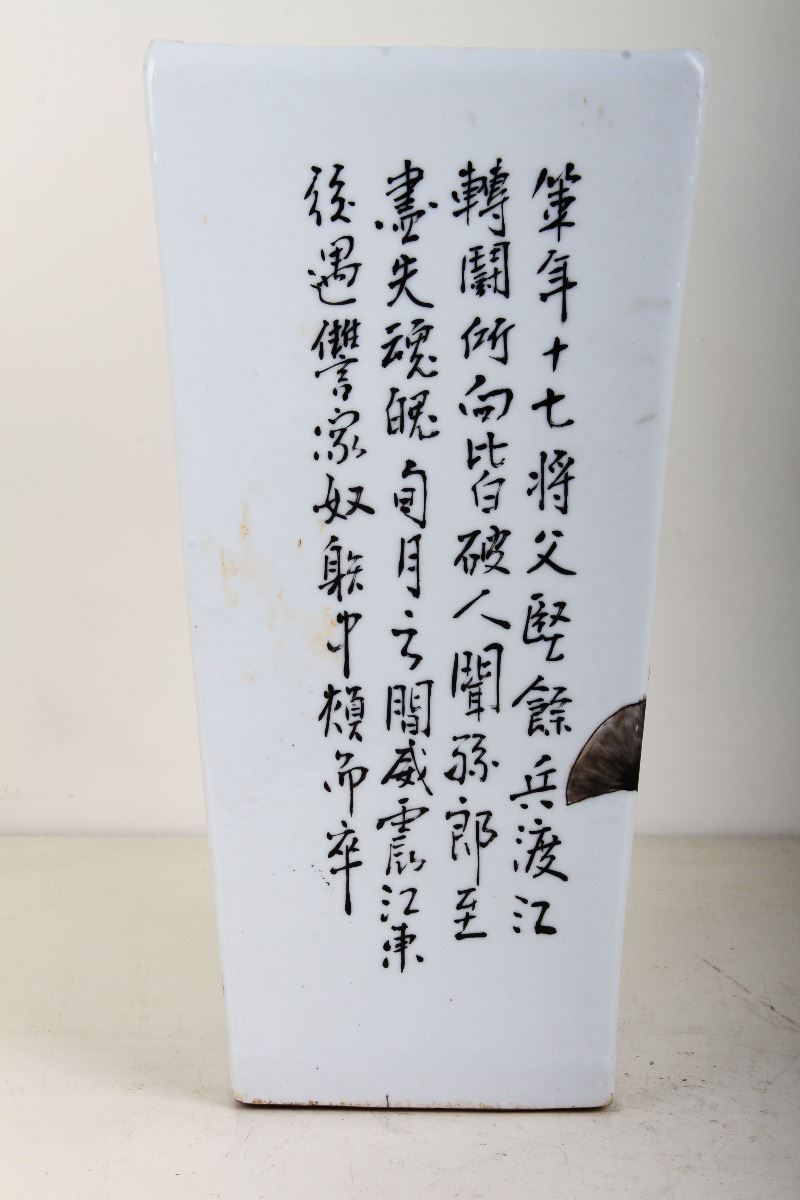 策年十七将父堅餘兵渡江
轉鬪所向皆破人聞孫郎至
盡失魂魄旬月之間威震江東
後遇讐家奴躲中頰而卒